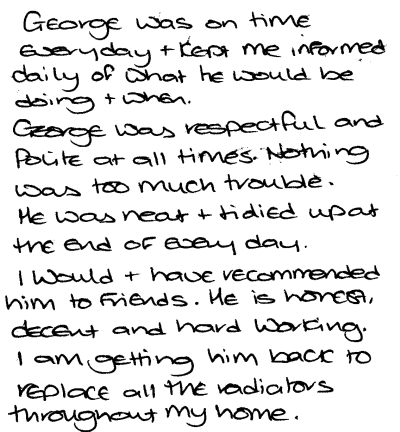 George was on time
everyday + kept me informed
daily of what he would be
doing + when.
George was respectful and
polite at all times. Nothing
was too much trouble.
He was neat + tidied up at
the end of every day.
I would + have recommended
him to friends. He is honest,
decent and hard working.
I am getting him back to
replace all the radiators
throughout my home.